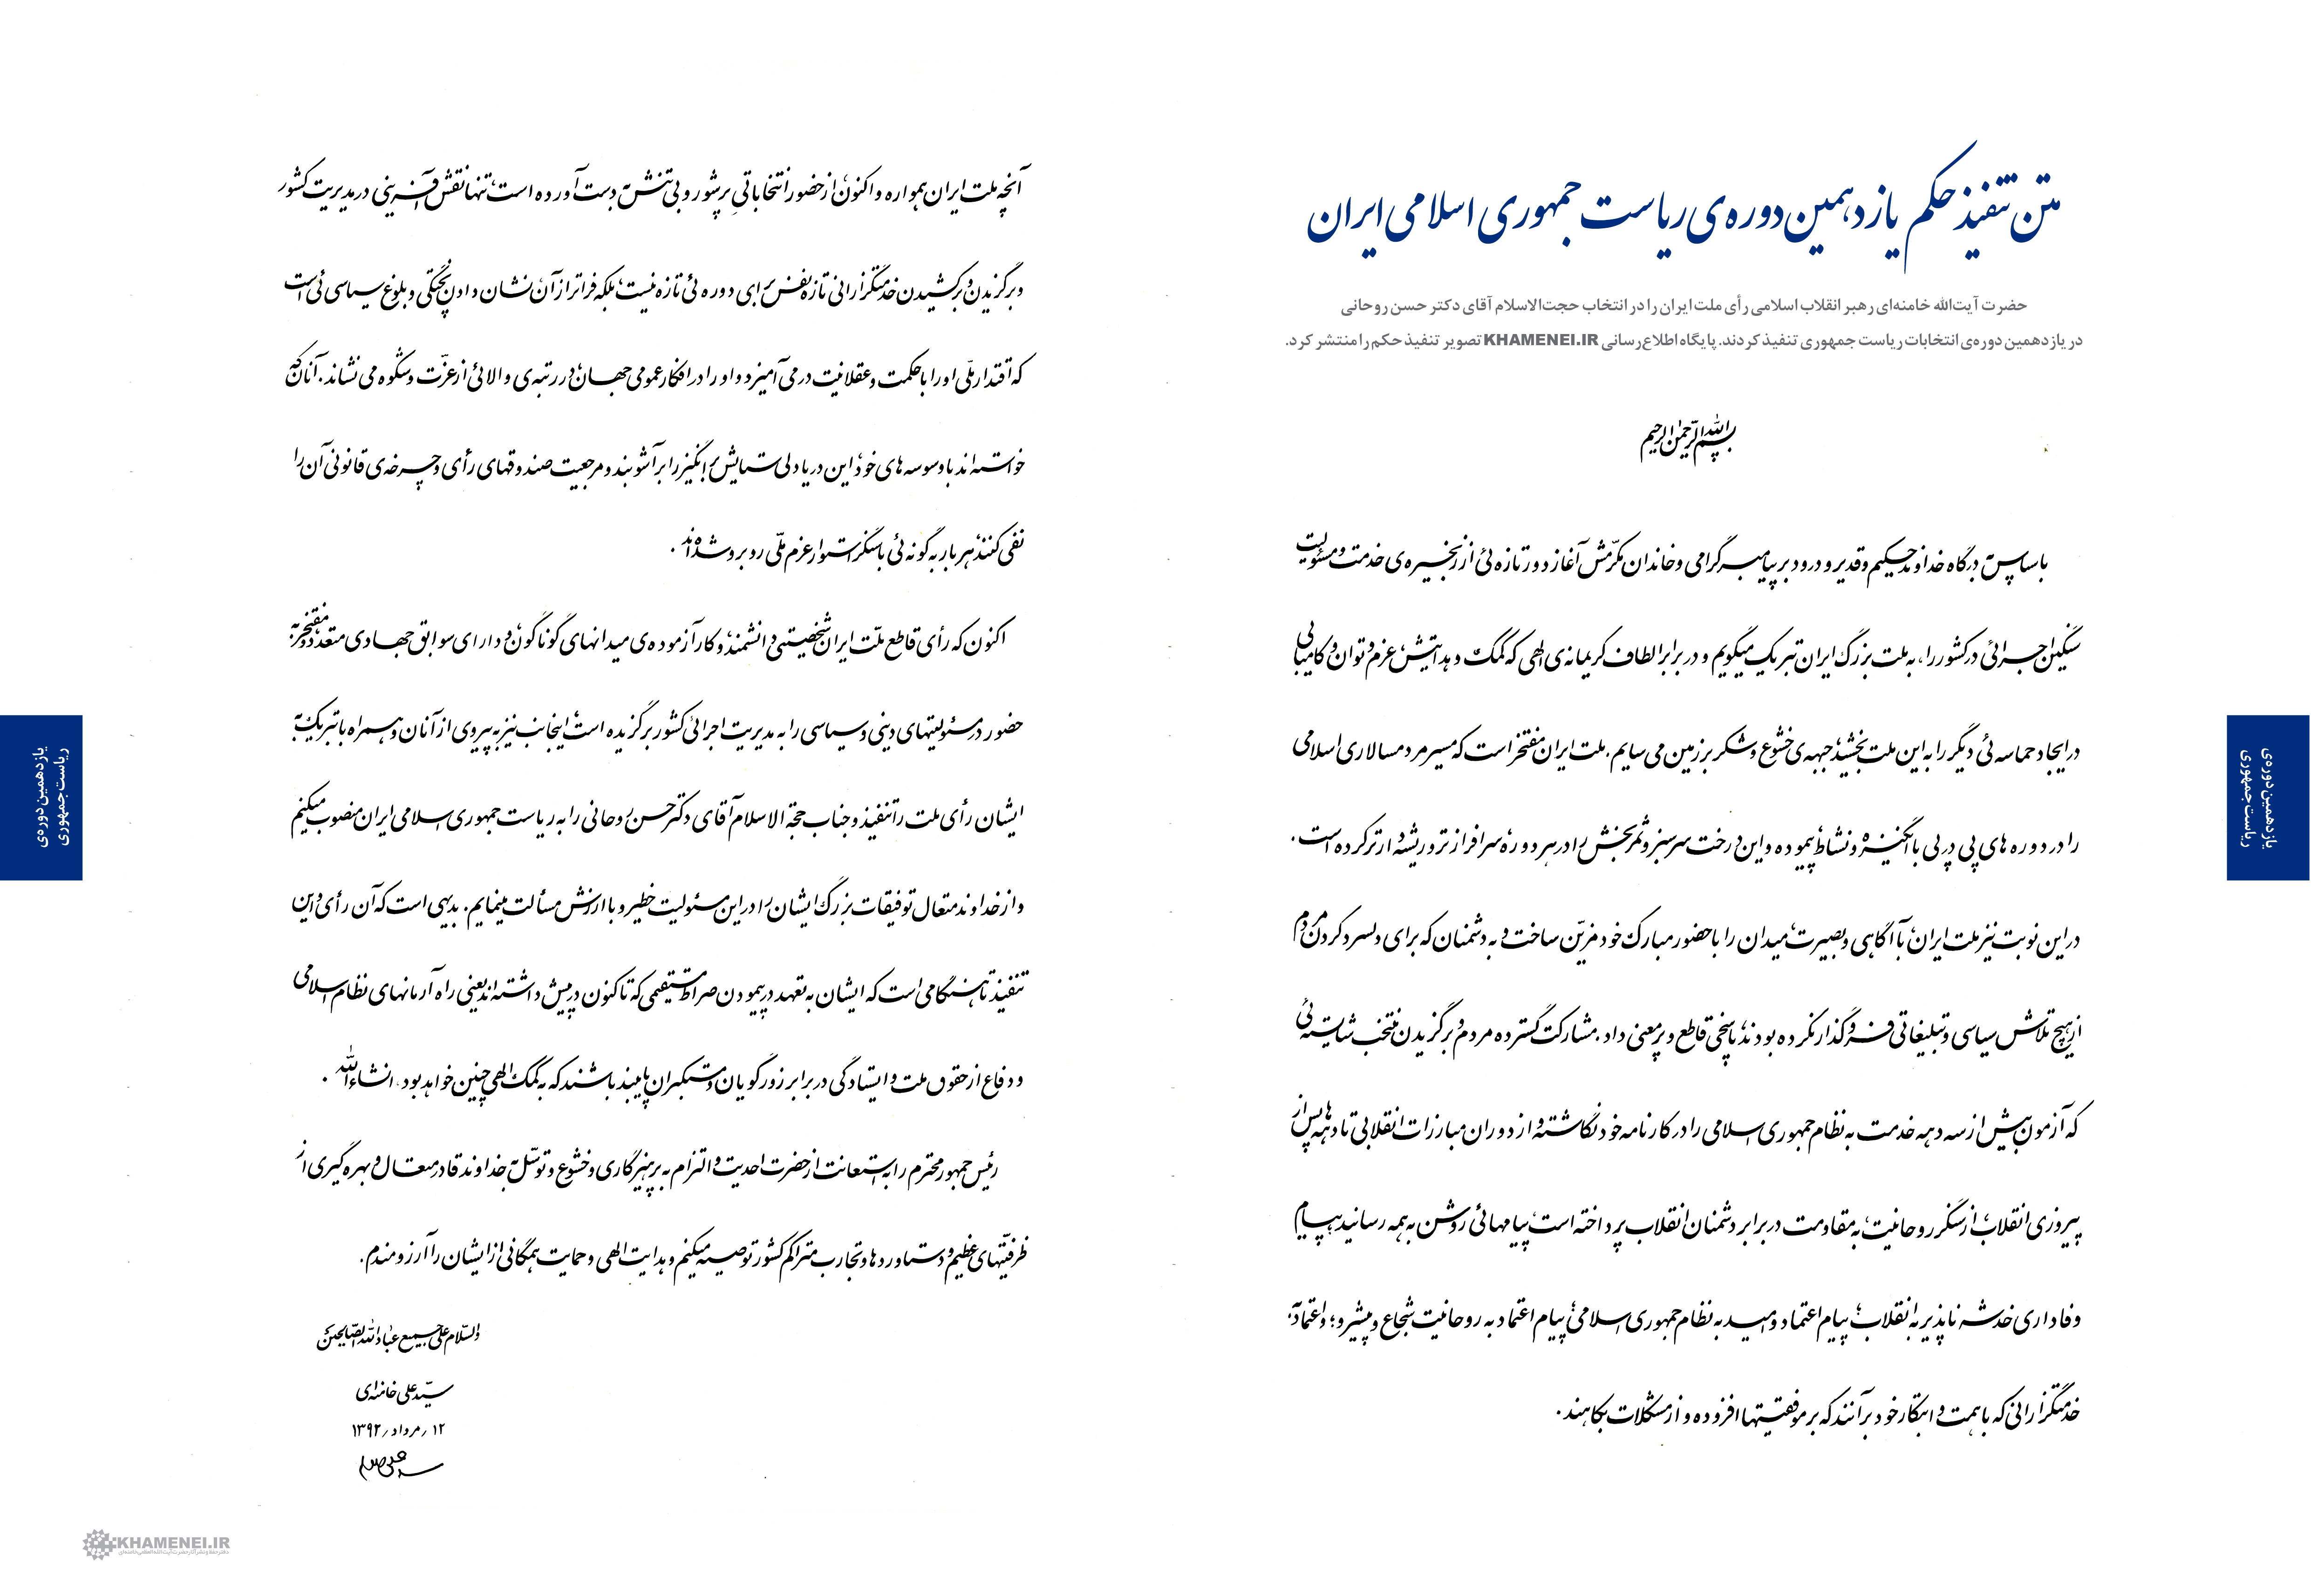 متن تنفیذ حکم یازدهمین دوره‌ی ریاست جمهوری اسلامی ایران
حضرت آیت‌الله خامنه‌ای رهبر انقلاب اسلامی رأی ملت ایران را در انتخاب حجت‌الاسلام آقای دکتر حسن روحانی
در یازدهمین دوره‌ی انتخابات ریاست جمهوری تنفیذ کردند. پایگاه اطلاع‌رسانی KHAMENEI.IR تصویر تنفیذ حکم را منتشر کرد.
بسم الله الرّحمن الرحیم
با سپاس به درگاه خداوند حکیم و قدیر و درود بر پیامبر گرامی و خاندان مکرّمش آغاز دور تازه‌ئی از زنجیره‌ی خدمت و مسئولیت
سنگین اجرائی در کشور را، به ملت بزرگ ایران تبریک میگویم و در برابر الطاف کریمانه‌ی الهی که کمک و هدایتش، عزم و توان و کامیابی
در ایجاد حماسه‌ئی دیگر را به این ملت بخشید، جبهه‌ی خشوع و شکر بر زمین می‌سایم. ملت ایران مفتخر است که مسیر مردمسالاری اسلامی
را در دوره‌های پی در پی با انگیزه و نشاط، پیموده و این درخت سرسبز و ثمربخش را در هر دوره، سرافرازتر و ریشه‌دارتر کرده است.
در این نوبت نیز ملت ایران، با آگاهی و بصیرت، میدان را با حضور مبارک خود مزیّن ساخت و به دشمنان که برای دلسرد کردن مردم
از هیچ تلاش سیاسی و تبلیغاتی فروگذار نکرده بودند، پاسخی قاطع و پرمعنی داد. مشارکت گسترده مردم و برگزیدن منتخب شایسته‌ئی
که آزمون بیش از سه دهه خدمت به نظام جمهوری اسلامی را در کارنامه خود نگاشته و از دوران مبارزات انقلابی تا دهه‌های پس از
پیروزی انقلاب، از سنگر روحانیت، به مقاومت در برابر دشمنان انقلاب پرداخته است، پیامهائی روشن به همه رسانید، پیام
وفاداری خدشه ناپذیر به انقلاب؛ پیام اعتماد و امید به نظام جمهوری اسلامی؛ پیام اعتماد به روحانیت شجاع و پیشرو؛ و اعتماد به
خدمتگزارانی که با همت و ابتکار خود برآنند که بر موفقیتها افزوده و از مشکلات بکاهند.
آنچه ملت ایران همواره و اکنون، از حضور انتخاباتی پرشور و بی‌تنش به دست آورده است، تنها نقش آفرینی در مدیریت کشور
و برگزیدن و برکشیدن خدمتگزارانی تازه نفس برای دوره‌ئی تازه نیست، بلکه فراتر از آن، نشان دادن پختگی و بلوغ سیاسی‌ئی است
که اقتدار ملّی او را با حکمت و عقلانیت در می‌آمیزد و او را در افکار عمومی جهان، در رتبه‌ی والائی از عزّت و شکوه می‌نشاند. آنان که
خواسته‌اند با وسوسه‌های خود، این دریادلی ستایش برانگیز را برآشوبند و مرجعیت صندوقهای رأی و چرخه‌ی قانونی آن را
نفی کنند، هر بار به گونه‌ئی با سنگر استوار عزم ملّی روبرو شده‌اند.
اکنون که رأی قاطع ملّت ایران، شخصیتی دانشمند، و کارآزموده‌ی میدانهای گوناگون، و دارای سوابق جهادی متعدد و مفتخر به
حضور در مسئولیتهای دینی و سیاسی را به مدیریت اجرائی کشور برگزیده است، اینجانب نیز به پیروی از آنان و همراه با تبریک به
ایشان رأی ملت را تنفیذ و جناب حجة الاسلام آقای دکتر حسن روحانی را به ریاست جمهوری اسلامی ایران منصوب میکنم
و از خداوند متعال توفیقات بزرگ ایشان را در این مسئولیت خطیر و با ارزش مسألت مینمایم. بدیهی است که آن رأی و این
تنفیذ تا هنگامی است که ایشان به تعهد در پیمودن صراط مستقیمی که تا کنون در پیش داشته‌اند، یعنی راه آرمانهای نظام اسلامی
و دفاع از حقوق ملت و ایستادگی در برابر زورگویان و مستکبران پایبند باشند که به کمک الهی چنین خواهد بود. انشاءالله.
رئیس جمهور محترم را به استعانت از حضرت احدیت و التزام به پرهیزگاری و خشوع و توسّل به خداوند قادر متعال و بهره‌گیری از
ظرفیّتهای عظیم و دستاوردها و تجارب متراکم کشور توصیه میکنم و هدایت الهی و حمایت همگانی از ایشان را آرزومندم.
والسّلام علی جمیع عباد الله الصّالحین
سیّد علی خامنه‌ای
۱۲ / مرداد / ۱۳۹۲
یازدهمین دوره‌ی
ریاست جمهوری
یازدهمین دوره‌ی
ریاست جمهوری
KHAMENEI.IR
دفتر حفظ و نشر آثار حضرت آیت‌الله العظمی خامنه‌ای